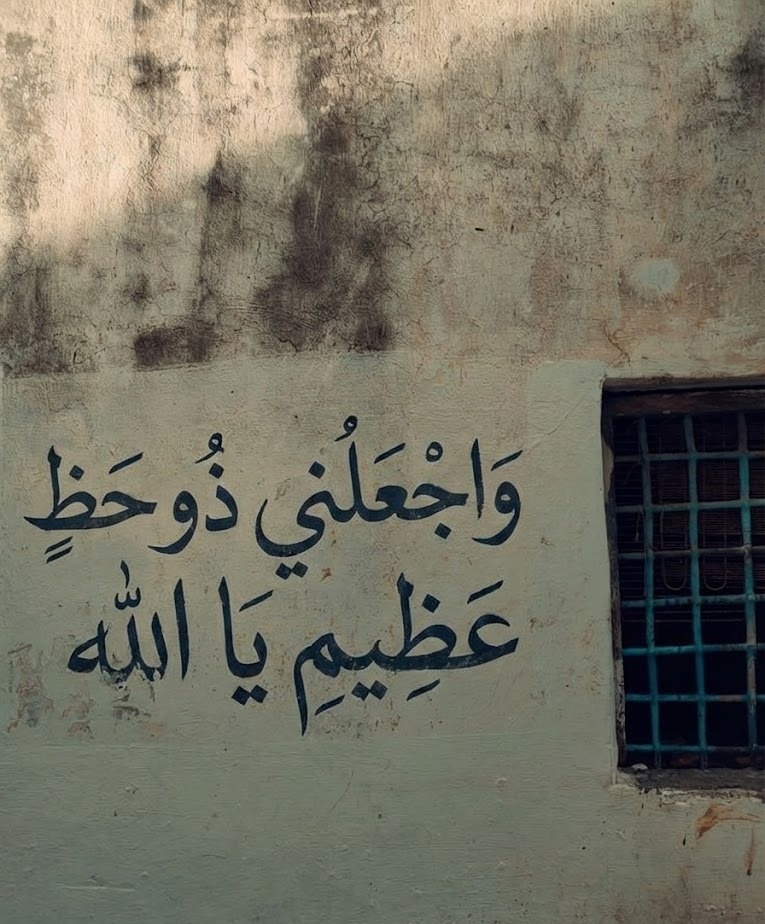 وَاجْعَلُني ذُو حَظٍ
عَظِيمِ يَا اللّه